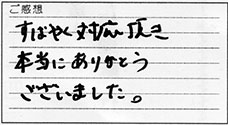 ご感想
すばやく対応頂き
本当にありがとう
ございました。